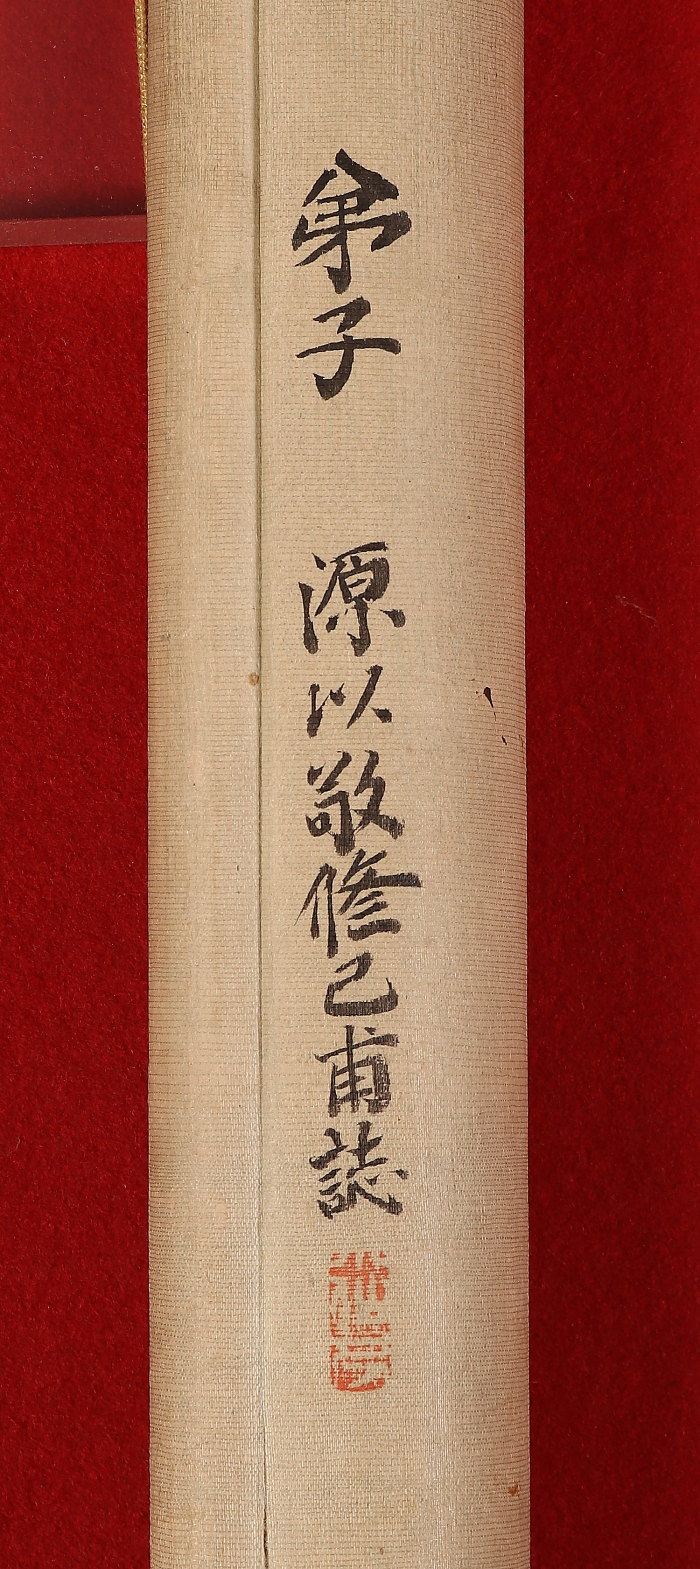 弟子 源以敬修己甫誌